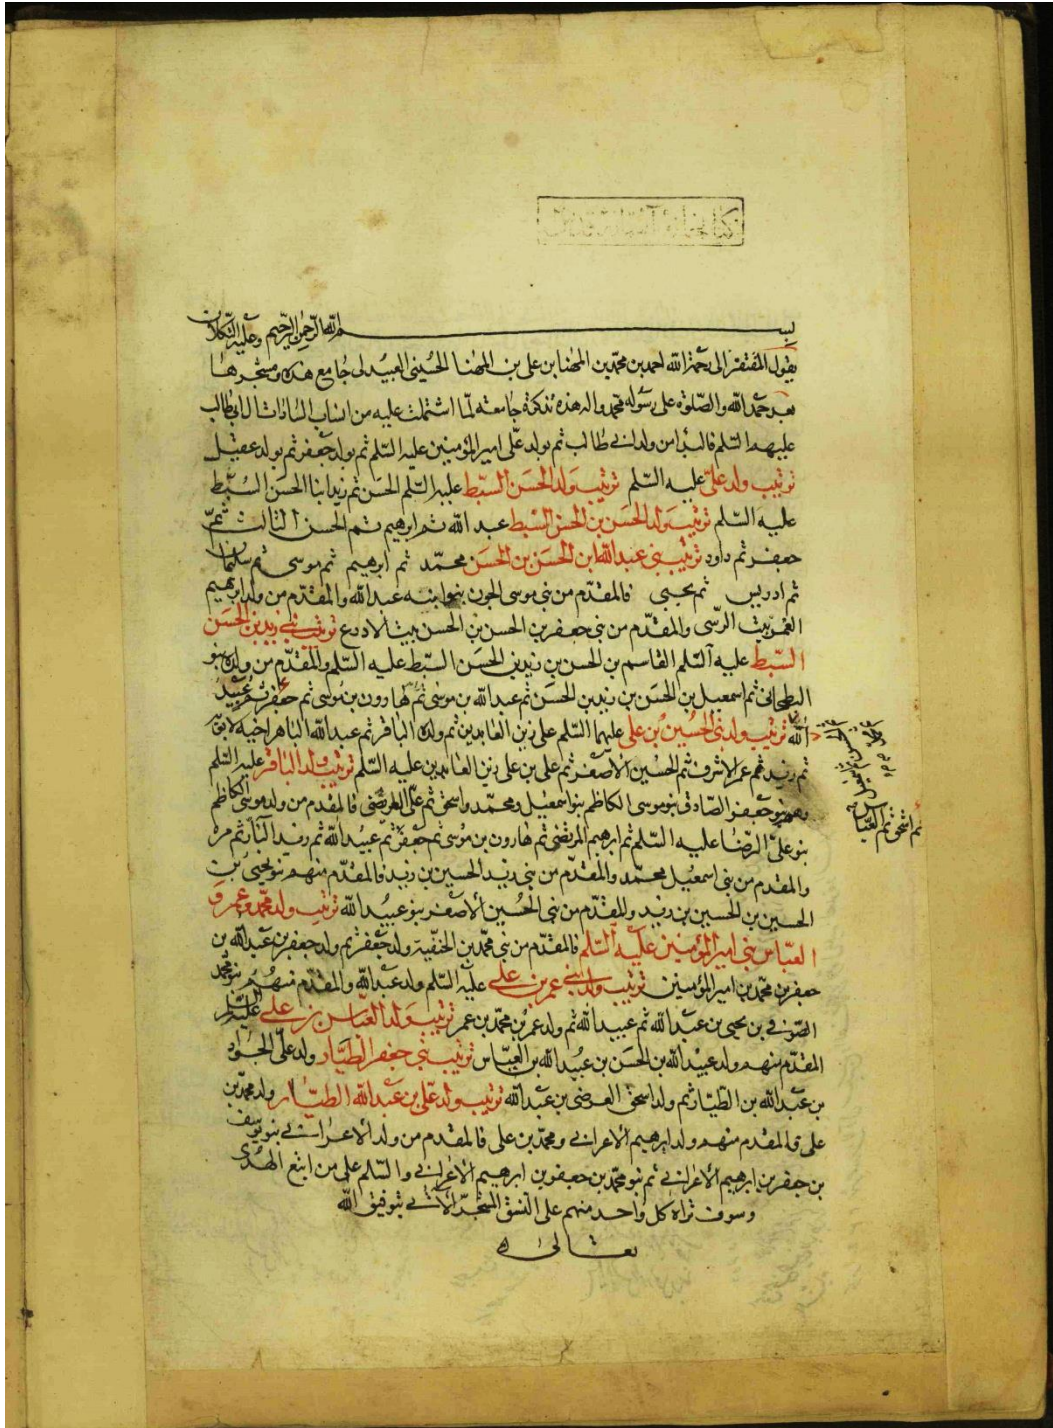 بسم الله الرحمن الرحيم وعليه التكلان
يقول المفتقر الى رحمة الله احمد بن محمد بن المهنا بن على بن المهنا الحسينى العبيدلى جامع هذه ومشجرها
بعد حمد الله والصلوة على رسوله محمد واله هذه تذكرة جامعة لما اشتملت عليه من انساب السادات ال ابى طالب
عليهم السلم فالبدأ من ولد ابى طالب ثم بولد على امير المؤمنين عليه السلم ثم بولد جعفر ثم بولد عقيل
ترتيب ولد على عليه السلم ترتيب ولد الحسن السبط عليه السلم الحسن ثم زيد ابنا الحسن السبط
عليه السلم ترتيب ولد الحسن بن الحسن السبط عبد الله ثم ابرهيم ثم الحسن الثالث ثم
جعفر ثم داود ترتيب بنى عبد الله ابن الحسن بن الحسن محمد ثم ابرهيم ثم موسى ثم سليمان
ثم ادريس ثم يحيى فالمقدم من بنى موسى الجون بنو ابنه عبد الله والمقدم من ولد ابرهيم
الغمر بيت الرسى والمقدم من بنى جعفر بن الحسن بن الحسن بيت الادرع ترتيب بنى زيد بن الحسن
السبط عليه السلم القاسم بن الحسن بن زيد بن الحسن السبط عليه السلم والمقدم من ولده بنو
البطحانى ثم اسمعيل بن الحسن بن زيد بن الحسن ثم عبد الله بن موسى ثم هارون بن موسى ثم جعفر ثم عبيد
الله ترتيب ولد بنى الحسين بن على عليهما السلم على زين العابدين ثم ولده الباقر ثم عبد الله الباهر اخيه لابويه
ثم زيد ثم عمر الاشرف ثم الحسين الاصغر ثم على بن على زين العابدين عليه السلم ترتيب ولد الباقر عليه السلم
وهم بنو جعفر الصادق بنو موسى الكاظم بنو اسمعيل ومحمد واسحق ثم على العريضى فالمقدم من ولد موسى الكاظم
بنو على الرضا عليه السلم ثم ابرهيم المرتضى ثم هارون بن موسى ثم جعفر ثم عبيد الله ثم زيد النار ثم حمزة
والمقدم من بنى اسمعيل محمد والمقدم من بنى زيد الحسين بن زيد فالمقدم منهم بنو يحيى بن
الحسين بن الحسين بن زيد والمقدم من بنى الحسين الاصغر بنو عبيد الله ترتيب ولد محمد وعمر و
العباس بنى امير المؤمنين عليه السلم فالمقدم من بنى محمد بن الحنفية ولد جعفر ثم ولد جعفر بن عبد الله بن
جعفر بن محمد بن امير المؤمنين ترتيب ولد بنى عمر بن على عليه السلم ولد عبد الله والمقدم منهم بنو محمد
الصوفى بن يحيى بن عبد الله ثم عبيد الله ثم ولد عمر بن محمد بن عمر ترتيب ولد العباس بن على عليه السلم
المقدم منهم ولد عبيد الله بن الحسن بن عبيد الله بن العباس ترتيب بنى جعفر الطيار ولد على الجواد
بن عبد الله بن الطيار ثم ولد اسحق العرضى بن عبد الله ترتيب ولد على بن عبد الله الطيار ولد محمد بن
على فالمقدم منهم ولد ابرهيم الاعرابى ومحمد بن على فالمقدم من ولد الاعرابى بنو يوسف
بن جعفر بن ابرهيم الاعرابى ثم بنو محمد بن جعفر بن ابرهيم الاعرابى والسلم على من اتبع الهدى
وسوف تراه كل واحد منهم على النسق المشجر الآتى بتوفيق الله
تعالى
ثم اسحق ثم العباس